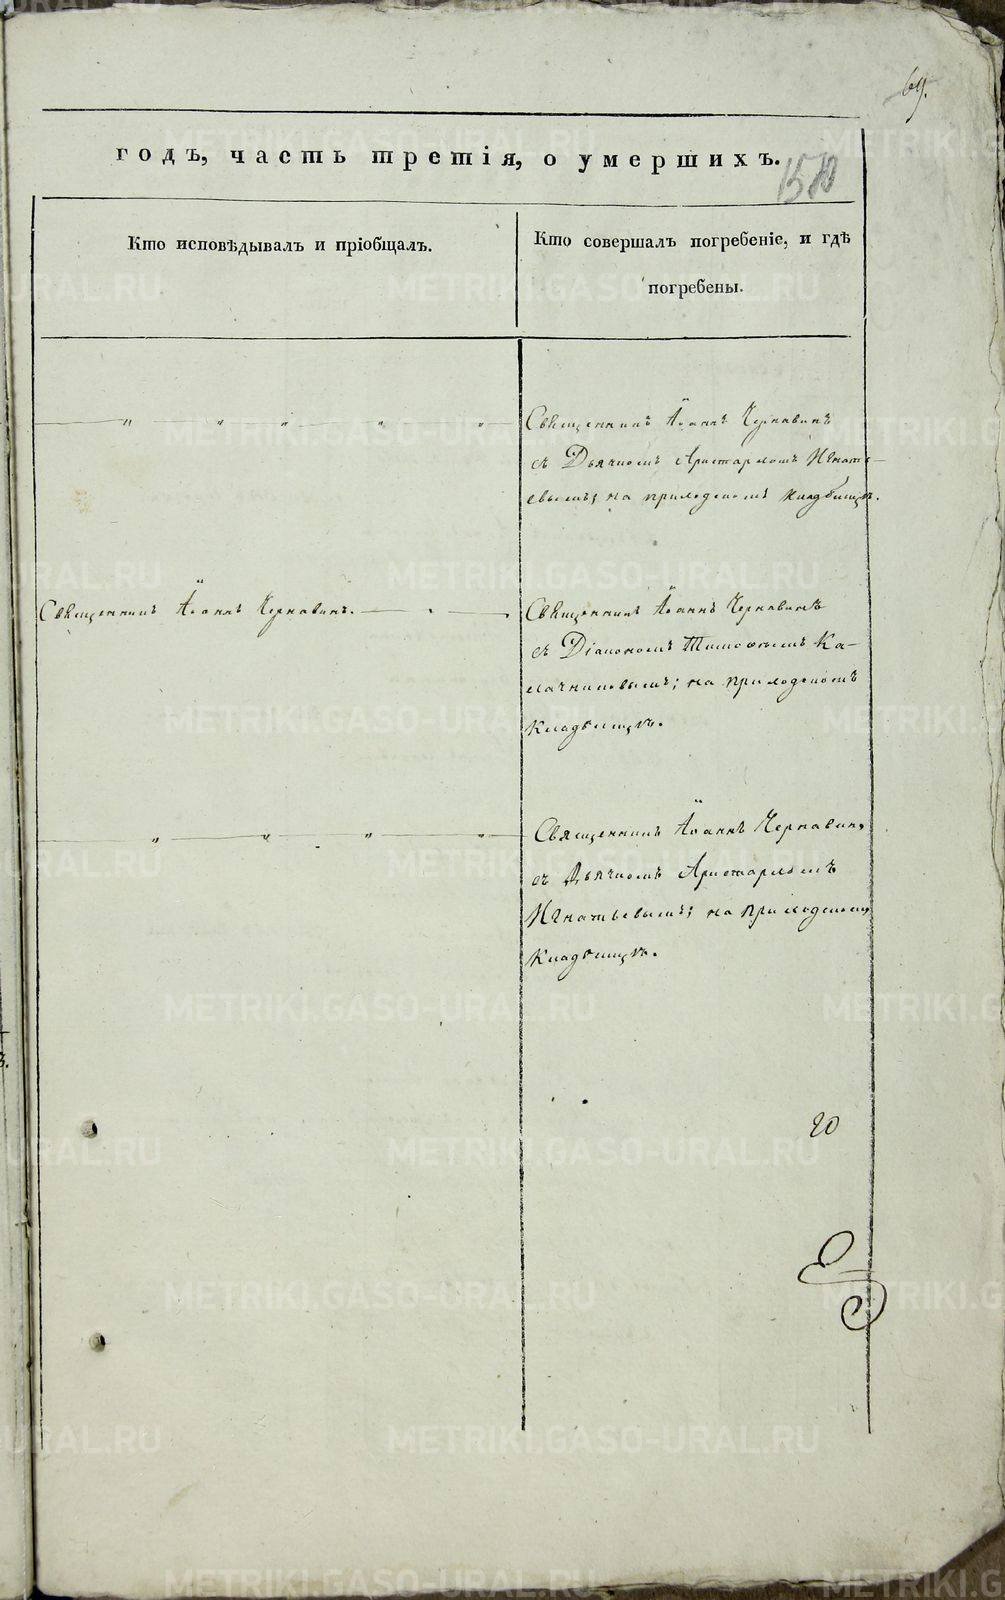 69.
годъ, часть третія, о умершихъ.
1580
Кто исповѣдывалъ и пріобщалъ.
Кто совершалъ погребеніе, и гдѣ
погребены.
Священникъ Іоаннъ Чернавинъ
съ Дьячкомъ Аристархомъ Игнать-
евымъ; на приходскомъ кладбищѣ.
Священникъ Іоаннъ Чернавинъ.
Священникъ Іоаннъ Чернавинъ
съ Діакономъ Тимофеемъ Ка-
лачниковымъ; на приходскомъ
кладбищѣ.
Священникъ Іоаннъ Чернавинъ
съ Дьячкомъ Аристархомъ
Игнатьевымъ; на приходскомъ
кладбищѣ.
20
METRIKI.GASO-URAL.RU